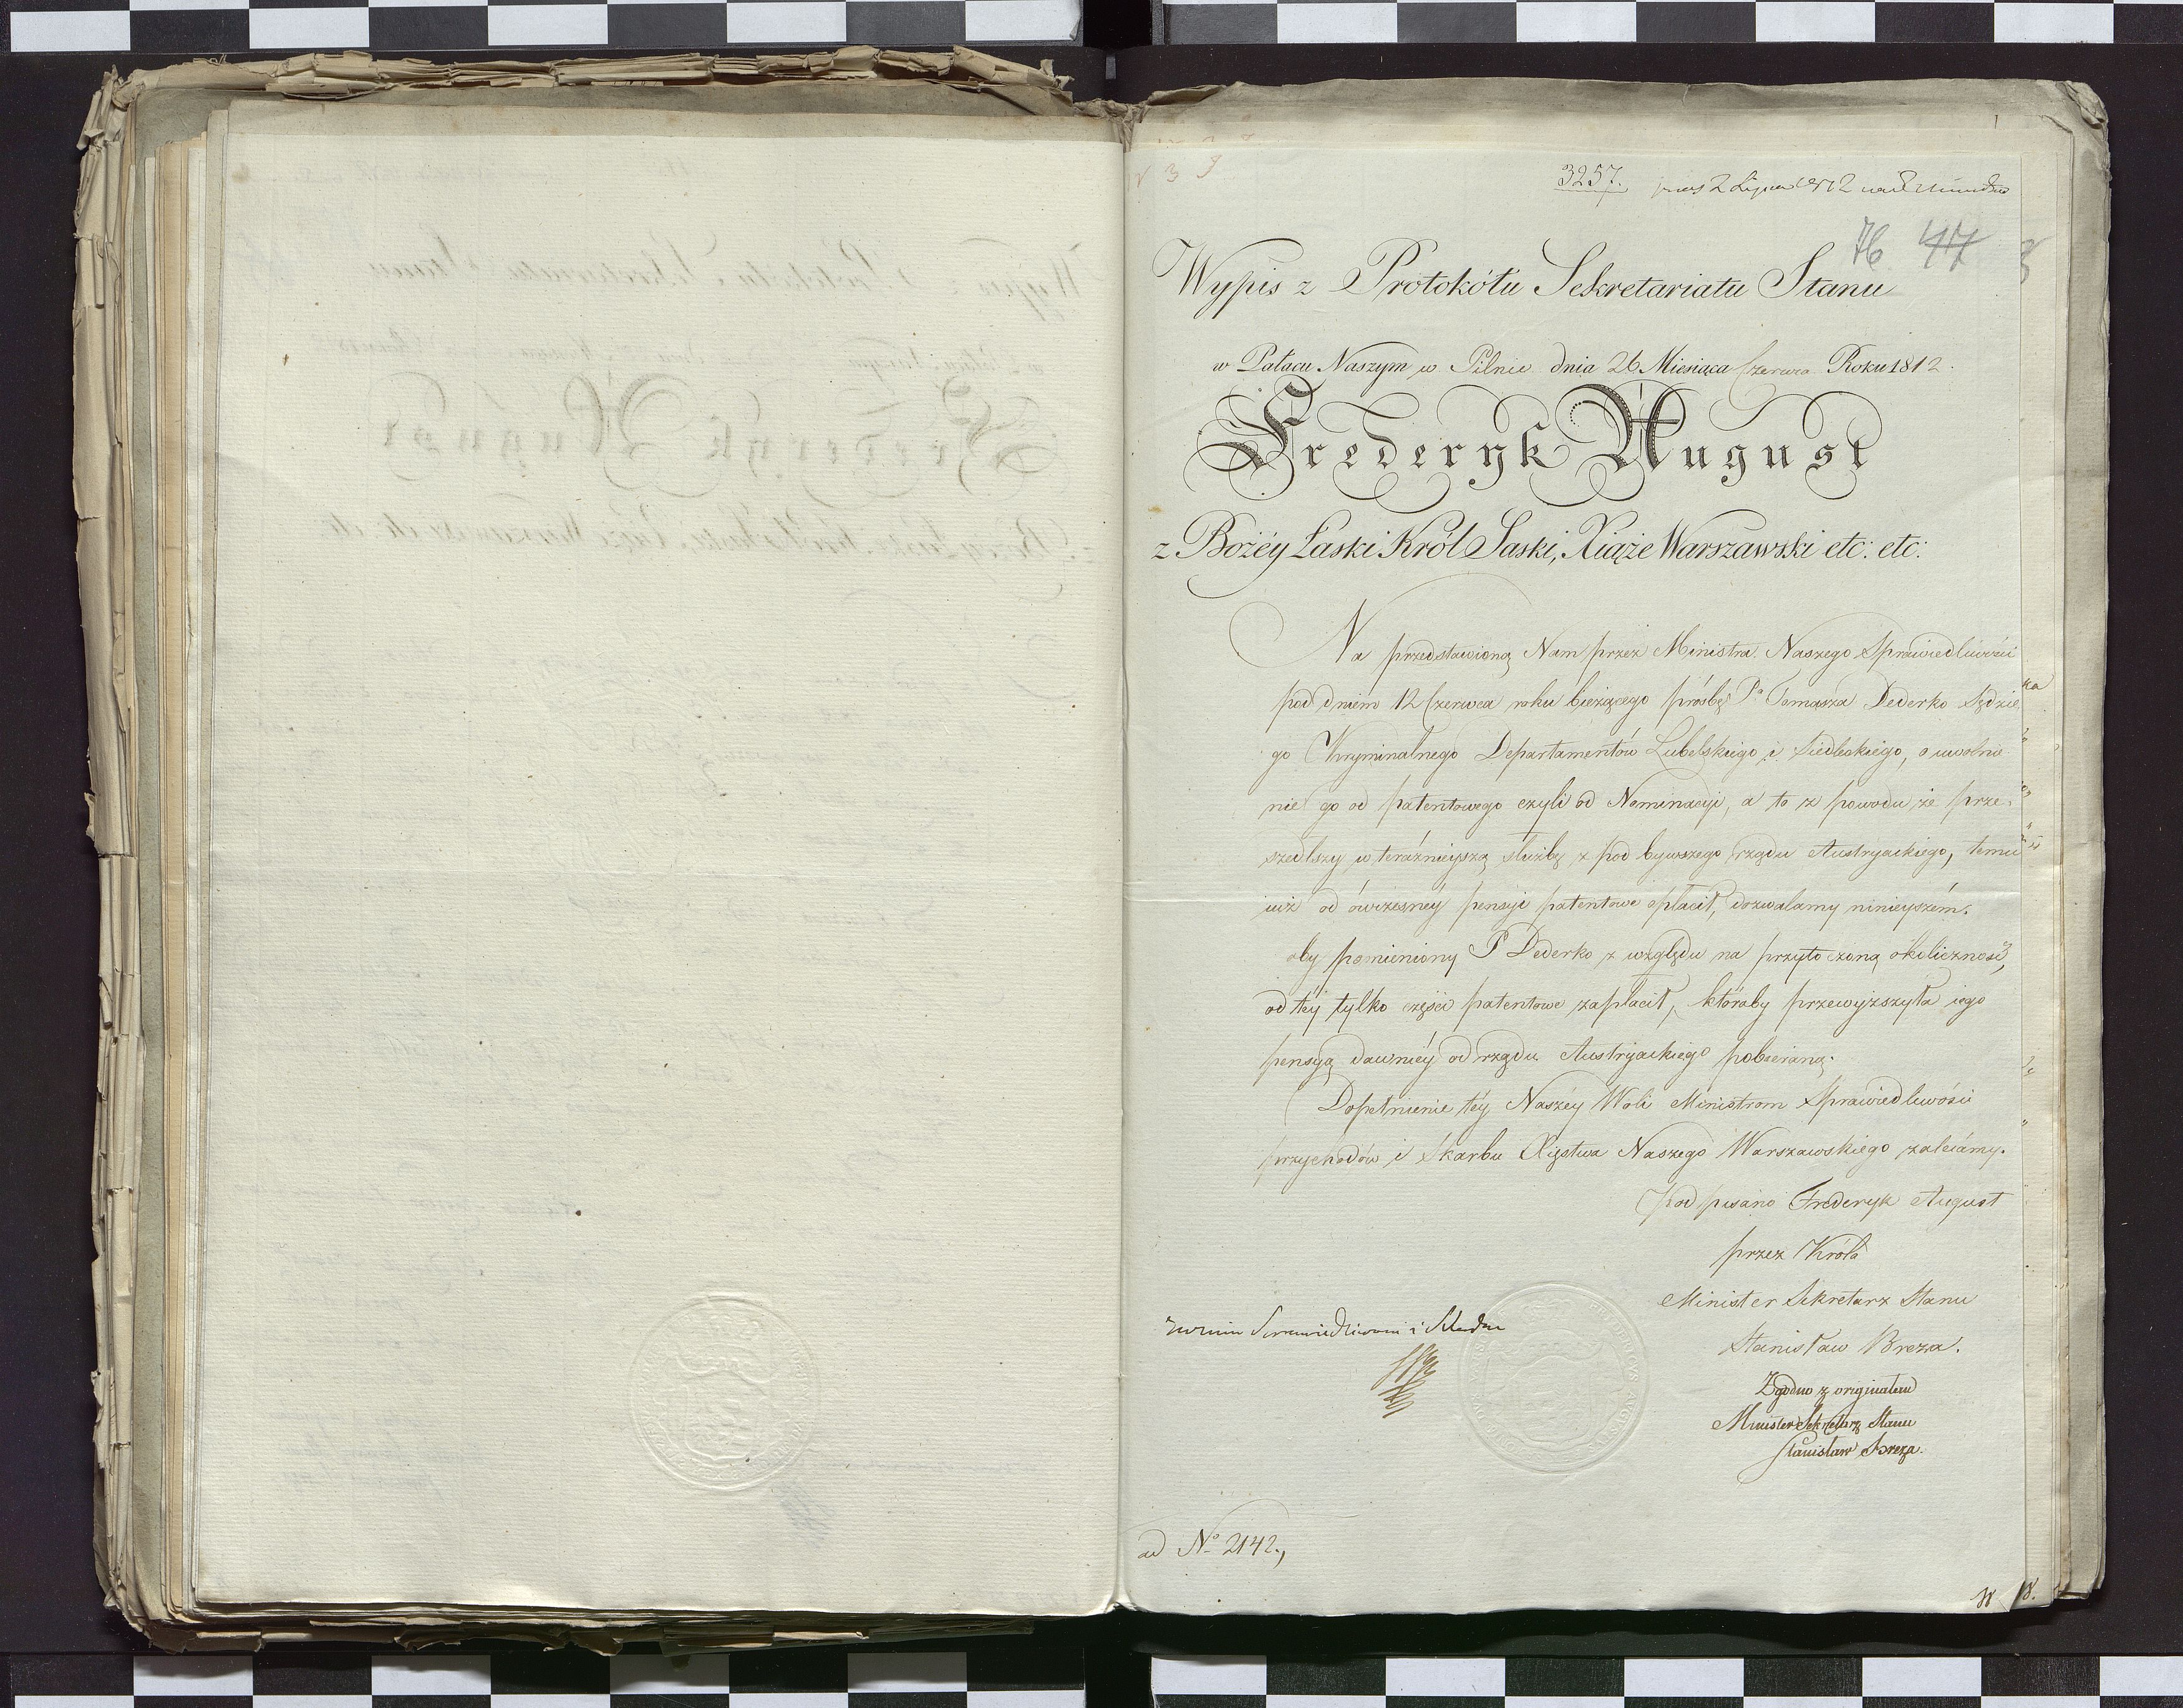 3257.
76 47
Wypis z Protokółu Sekretariatu Stanu
w Pałacu Naszym w Pilnic dnia 26 Miesiąca Czerwca Roku 1812.
Frederyk August
z Bożéy Łaski Król Saski, Xiąże Warszawski etc: etc:
Na przedstawioną Nam przez Ministra Naszego Sprawiedliwości
pod dniem 12 Czerwca roku bieżącego prósbę Pa Tomasza Dederko Sędzie
go Kryminalnego Departamentów Lubelskiego i Siedleckiego, o uwolnie
nie go od patentowego czyli od Nominacyi, a to z powodu że prze-
szedłszy w teraźnieyszą służbę z pod bywszego rządu Austryackiego, temu
iuż od ówczesnéy pensyi patentowe opłacił, dozwalamy ninieyszém.
aby pomieniony P Dederko z względu na przytoczoną okoliczność,
od téy tylko części patentowe zapłacił, któraby przewyższyła iego
pensyą dawniéy od rządu Austryackiego pobieraną.
Dopełnienie téy Naszéy Woli Ministrom Sprawiedliwości
przychodów i Skarbu Xięstwa Naszego Warszawskiego zalecámy.
podpisano Frederyk August
przez Króla
Minister Sekretarz Stanu
Stanisław Breza.
Zgodno z originałem
Minister Sekretarz Stanu
Stanisław Breza.
ad No 2142.,